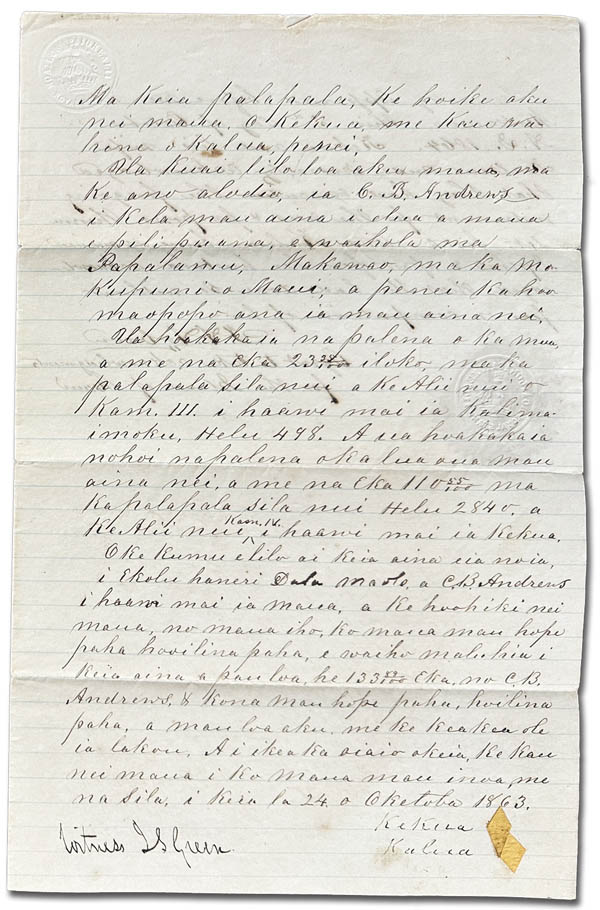 Ma Keia palapala, Ke hoike aku
nei maua, o Kekua, me Kau wa
hine o Kalua, penei,
Ua Kuai lilo loa aku maua, ma
Ke ano alodio, ia C. B. Andrews
i Kela mau aina i elua a maua
e pili pu ana, a waihola ma
Papalaau, Makawao, ma ka mo
Kupuni o Maui; a penei Ka hoo
maopopo ana ia mau aina nei.
Ua hoakaka ia na palena o ka mua,
a me na Eka 23 iloko, ma ka
palapala sila nui a Ke Alii nui o
Kam. III. i haawi mai ia Kalima-
imoku, Helu 498. A ua hoakaka ia
no hoi na palena o ka lua oua mau
aina nei, a me na Eka 110 55/100 ma
Ka palapala sila nui Helu 2840, a
Ke Alii nui Kam. IV. i haawi mai ia Kekua.
O Ke Kumu e lilo ai Keia aina ua noia,
i Ekolu haneri Dala maolo, a C. B. Andrews
i haawi mai ia maua, a Ke hoohiki nei
maua, no maua iho, Ko maua mau hope
paha hooilina paha, e waiho maluhia i
Keia aina a pau loa, he 133 Eka, no C. B.
Andrews, & Kona mau hope paha, hoilina
paha, a mau loa aku, me Ke Keakea ole
ia lakou, A i ike a ka oiaio o Keia, Ke Kau
nei maua i Ko maua mau inoa, me
na Sila, i Keia la 24 o Oketoba 1863.
Kekua
Witness J S Green
Kalua